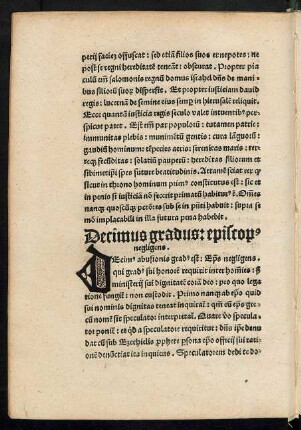 perij facies offuscat: sed etiã filios suos et nepotes: ne
post se regni hereditatẽ teneãt: obscurat. Propter pia
culũ em̃ salomonis regnũ domus israhel dñs de mani
bus filiorũ suoꝝ dispersit. Et propter iusticiam dauid
regis: lucernã de semine eius semꝑ in hierusalẽ reliquit.
Ecce quantũ iusticia regis seculo valet intuentibꝰ per-
spicue patet. Est em̃ pax populorũ: tutamen patrie:
immunitas plebis: munimentũ gentis: cura lãguorũ:
gaudiũ hominum: tẽperies aeris: serenitas maris: ter-
re fecũditas: solatiũ pauperũ: hereditas filiorum et
sibimetipsi spes future beatitudinis. Attamẽ sciat rex
qꝫ sicut in throno hominum primꝰ constitutus est: sic et
in penis si iusticiã nõ fecerit primatũ habiturꝰ ẽ. Om̃es
nanqꝫ quoscũqꝫ pctõres sub se in pñti habuit: supra se
mõ implacabili in illa futura pena habebit.
Decimus gradus: episcopꝰ
negligens.
DEcimꝰ abusionis gradꝰ est: Eps̃ negligens,
qui gradꝰ sui honorẽ requirit inter homĩes: sꝫ
ministerij sui dignitatẽ corã deo: pro qua lega
tione fungit̃: non custodit. Primo nanqꝫ ab epõ quid
sui nominis dignitas teneat inquirat̃: qm̃ eps̃ gre-
cũ nomẽ sit: speculator interpretat̃. Quare ṽo specula-
tor ponit̃: et qd a speculatore requiritur: dñs ipẽ denu
dat cũ sub Ezechielis ꝓphete persona epõ officij sui ratio
nẽ denũciat ita inquiens. Speculatorem dedi te do-